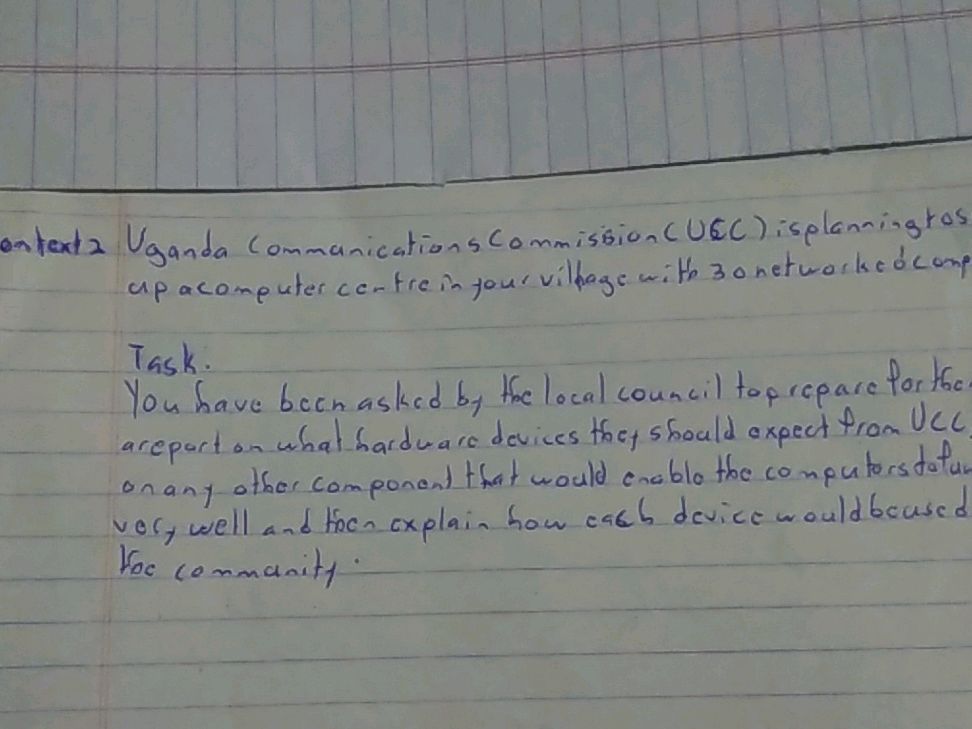 ontext 2 Uganda Communications Commission (UCC) is planning to s
up a computer centre in your village with 30 networked comp
Task.
You have been asked by the local council to prepare for the
a report on what hardware devices they should expect from UCC,
on any other component that would enable the computers to fun
very well and then explain how each device would be used
the community.